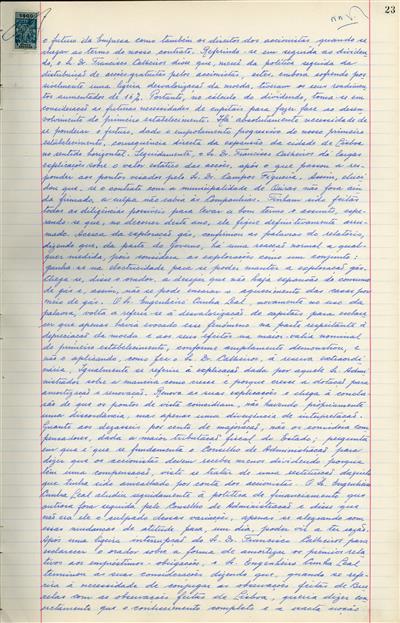 23
o futuro da Empresa como também os direitos dos accionistas, quando se
chegar ao termo do nosso contrato. Referindo-se em seguida ao dividen-
do, o Sr. Dr. Francisco Calheiros disse que, mercê da política seguida da
distribuição de acções gratuitas pelos accionistas, estes, embora sofrendo pos-
sivelmente uma ligeira desvalorização da moeda, tiveram os seus rendimen-
tos aumentados de Portanto, no cálculo do dividendo, toma-se em
consideração as futuras necessidades de capitais para fazer face ao desen-
volvimento do primeiro estabelecimento. Há absolutamente necessidade de
se ponderar o futuro, dado o empolamento progressivo do nosso primeiro
estabelecimento, consequência directa da expansão da cidade de Lisboa
no sentido horizontal. Seguidamente, o Sr. Dr. Francisco Calheiros dá largas
explicações sobre o valor efectivo das acções, após o que passou a res-
ponder aos pontos visados pelo Sr. Dr. Campos Figueira. Assim, eluci-
dou que, se o contrato com a municipalidade de Oeiras não fora ain-
da firmado, a culpa não cabia às Companhias. Tinham sido feitas
todas as diligências possíveis para levar a bom termo o assunto, espe-
rando-se que, no decorrer deste ano, ele fique definitivamente arru-
mado. Acerca da exploração gás, confirmou as palavras do relatório,
dizendo que, da parte do Governo, há uma reacção normal a qual-
quer medida, pois considera as explorações como um conjunto:
ganha-se na electricidade para se poder manter a exploração gás.
Chega-se, disse o orador, a desejar que não haja expansão do consumo
de gás e, assim, não se pode encarar o aquecimento das casas por
meio de gás. O Sr. Engenheiro Cunha Leal, novamente no uso da
palavra, volta a referir-se à desvalorização de capitais para esclare-
cer que apenas havia evocado esse fenómeno na parte respeitante à
depreciação da moeda e aos seus efeitos no maior valor nominal
do primeiro estabelecimento, conforme amplamente demonstrou, e
não o aplicando, como fez o Sr. Dr. Calheiros, à reserva extraordi-
nária. Igualmente se refere à explicação dada por aquele Sr. Admi-
nistrador sobre a maneira como cresce e porque cresce a dotação para
amortização e renovação. Renova as suas explicações e chega à conclu-
são de que os pontos de vista coincidiam, não havendo pròpriamente
uma discordância, mas apenas uma divergência de interpretação.
Quanto aos dezasseis por cento de majoração, não os considera com-
pensadores, dada a maior tributação fiscal do Estado; pergunta
em que é que se fundamenta o Conselho de Administração para
dizer que os accionistas devem receber menos dividendo porque
têm uma compensação, visto se tratar de uma restituição daquilo
que tinha sido amealhado por conta dos accionistas. O Sr. Engenheiro
Cunha Leal aludiu seguidamente à política de financiamento que
outrora fora seguida pelo Conselho de Administração e disse que
não era ele o culpado dessas variações, apenas se alegrando com
essas mudanças de atitude para, um dia, poder vir a ter razão.
Após uma ligeira interrupção do Sr. Dr. Francisco Calheiros para
esclarecer o orador sobre a forma de amortizar os prémios relati-
vos aos empréstimos-obrigações, o Sr. Engenheiro Cunha Leal
terminou as suas considerações dizendo que, quando se refe-
ria à necessidade de conjugar as observações feitas de Bru-
xelas com as observações feitas de Lisboa, queria dizer con-
cretamente que o conhecimento completo e a exacta noção